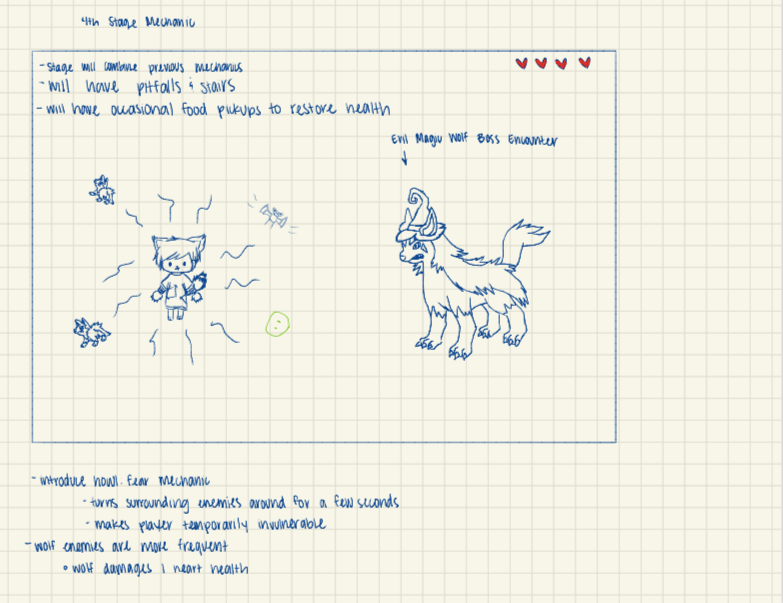 4th Stage Mechanic
- Stage will combine previous mechanics
- will have pitfalls & stairs
- will have occasional food pickups to restore health
Evil Magic Wolf Boss Encounter
- introduce howl. fear mechanic
- turns surrounding enemies around for a few seconds
- makes player temporarily invulnerable
- wolf enemies are more frequent
• wolf damages 1 heart health